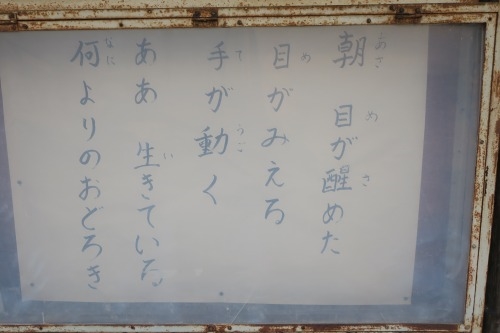 朝 目が醒めた
目がみえる
手が動く
ああ 生きていた
何よりのおどろき